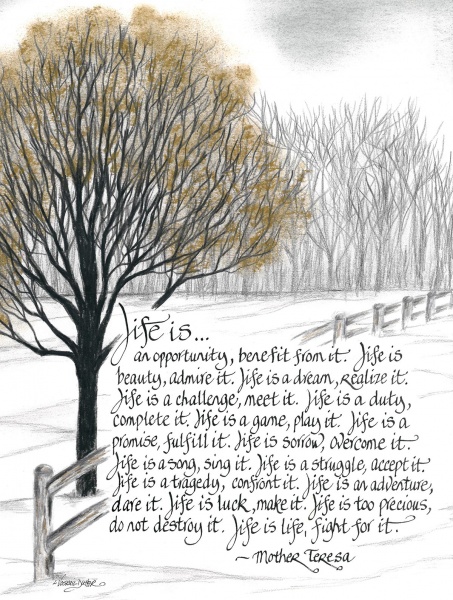 Life is...
an opportunity, benefit from it. Life is
beauty, admire it. Life is a dream, realize it.
Life is a challenge, meet it. Life is a duty,
complete it. Life is a game, play it. Life is a
promise, fulfill it. Life is sorrow, overcome it.
Life is a song, sing it. Life is a struggle, accept it.
Life is a tragedy, confront it. Life is an adventure,
dare it. Life is luck, make it. Life is too precious,
do not destroy it. Life is life, fight for it.
~ Mother Teresa